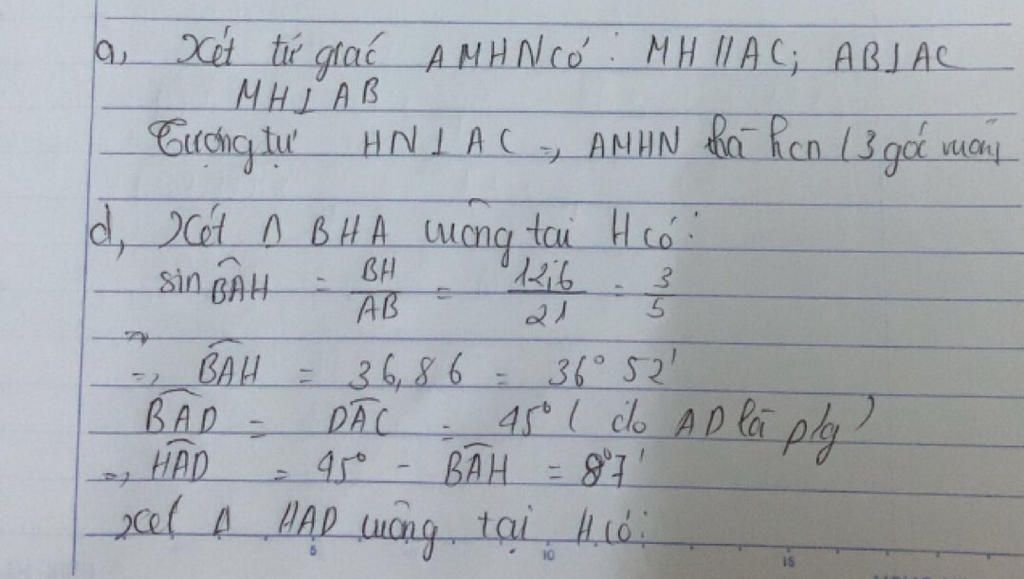 a, Xét tứ giác AMHN có: MH // AC; AB ⊥ AC
MH ⊥ AB
Tương tự HN ⊥ AC =, AMHN là hcn (3 góc vuông
d, Xét Δ BHA vuông tại H có:
sin BAH = BH/AB = 12,6/21 = 3/5
=, BAH = 36,86 = 36° 52'
BAD = DAC = 45° ( do AD là p/g )
=, HAD = 45° - BAH = 8°7'
Xét Δ HAD vuông tại H có:
5 10 15